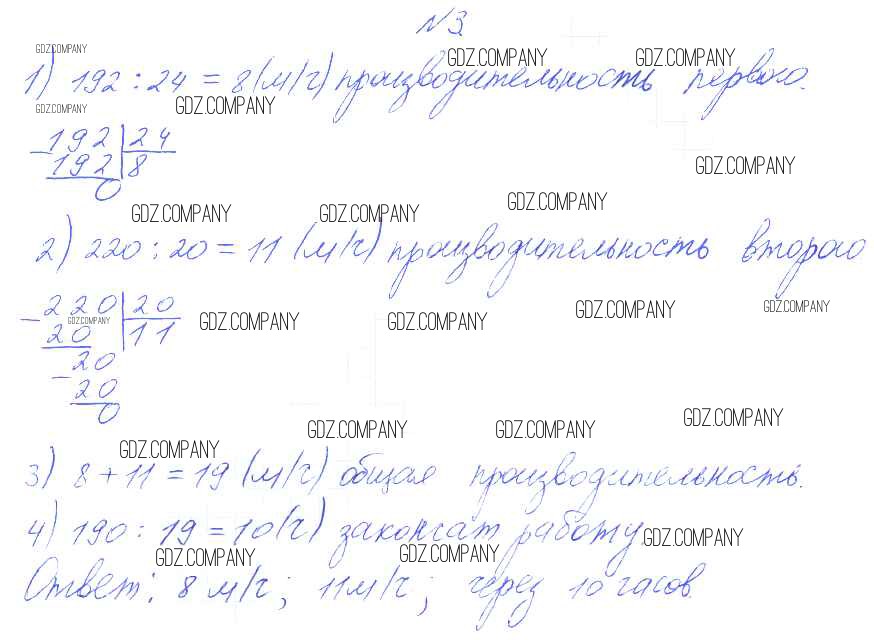 №3
GDZ.COMPANY
GDZ.COMPANY GDZ.COMPANY
1) 192 : 24 = 8 (м/ч) производительность первого.
GDZ.COMPANY GDZ.COMPANY
192 24
192 8
0
GDZ.COMPANY
GDZ.COMPANY GDZ.COMPANY GDZ.COMPANY
2) 220 : 20 = 11 (м/ч) производительность второго
220 20
GDZ.COMPANY GDZ.COMPANY GDZ.COMPANY GDZ.COMPANY GDZ.COMPANY
20 11
20
20
0
GDZ.COMPANY GDZ.COMPANY GDZ.COMPANY
GDZ.COMPANY
3) 8 + 11 = 19 (м/ч) общая производительность.
4) 190 : 19 = 10 (ч) закончат работу
GDZ.COMPANY
GDZ.COMPANY GDZ.COMPANY
Ответ: 8 м/ч; 11 м/ч; через 10 часов.